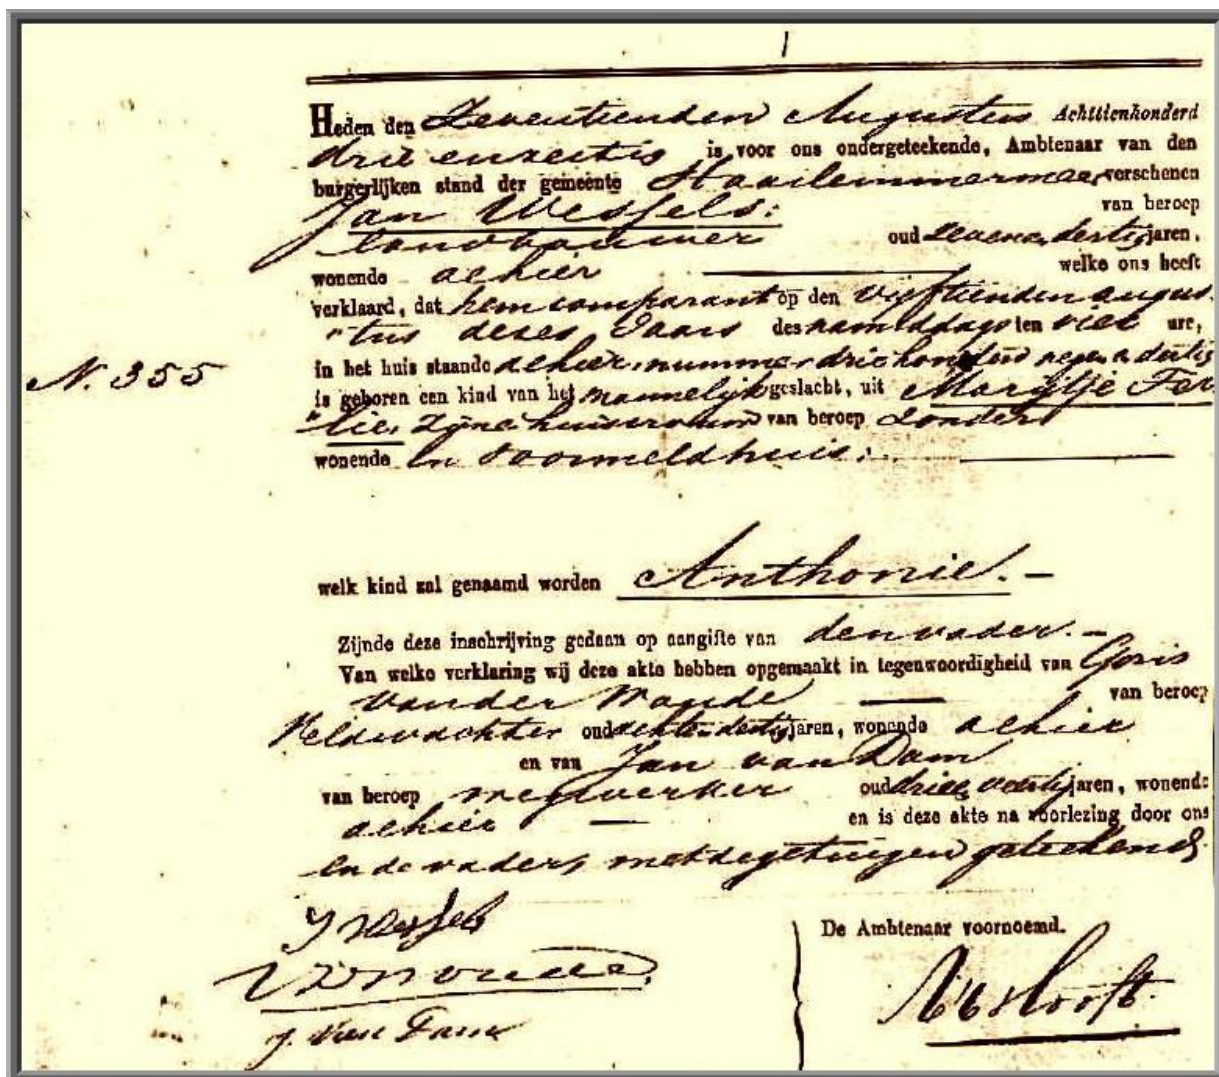 Heden den Zeventienden Augustus Achttienhonderd
drie en zestig is voor ons ondergeteekende, Ambtenaar van den
burgerlijken stand der gemeente Haarlemmermeer verschenen
Jan Wessels: van beroep
landbouwer oud zeven en dertig jaren,
wonende alhier welke ons heeft
verklaard, dat hem comparant op den vijftienden augus
"tus dezes Jaars des namiddags ten vier ure,
N. 355
in het huis staande alhier, nummer drie honderd negen en dertig
is geboren een kind van het mannelijk geslacht, uit Marijtje Fer
"lie, zijne huisvrouw van beroep zonder
wonende in voormeld huis:
welk kind zal genaamd worden Anthonie. –
Zijnde deze inschrijving gedaan op aangifte van den vader. –
Van welke verklaring wij deze akte hebben opgemaakt in tegenwoordigheid van Goris
van der van beroep
Veldwachter oud acht en dertig jaren, wonende alhier
en van Jan van Dam
van beroep wegwerker oud drie en veertig jaren, wonende
alhier – en is deze akte na voorlezing door ons
en de vader, met de getuigen geteekend.
J Wessels
De Ambtenaar voornoemd.
J. van Dam